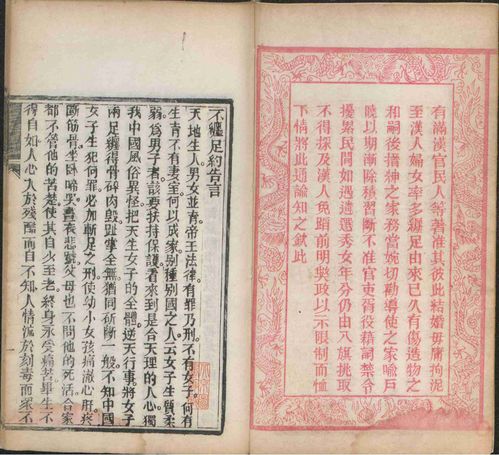 有滿漢官民人等著准其彼此結婚毋庸拘泥
至漢人婦女率多纏足由來已久有傷造物之
和嗣後搢紳之家務當婉切勸導使之家喻戶
曉以期漸除積習斷不准官吏胥役藉詞禁令
擾累民間如遇遴選秀女年分仍由八旗挑取
不得採及漢人免蹈前明弊政以示限制而恤
下情將此通諭知之欽此
不纏足約告言
天地生人男女並育帝王法律有罪乃刑不有女子何有
生育不有妻室何以成家別種別國之人云女子生質柔
弱爲男子者該要扶持保護看來到是合天理的人心獨
我中國風俗異怪把天生女子的全體逆天行事將女子
兩足纏得骨碎肉毁趾掌全無猶同斫斷一般不知中國
女子生犯何罪必加斬足之刑使幼小女孩痛澈心肝疼
斷筋骨坐臥啼哭晝夜悲號父母也不問他的死活合家
都不管他的苦楚使其自少至老終身永受痛苦畢生不
得自如人心入於殘酷而自不知人情流於刻毒而衆不